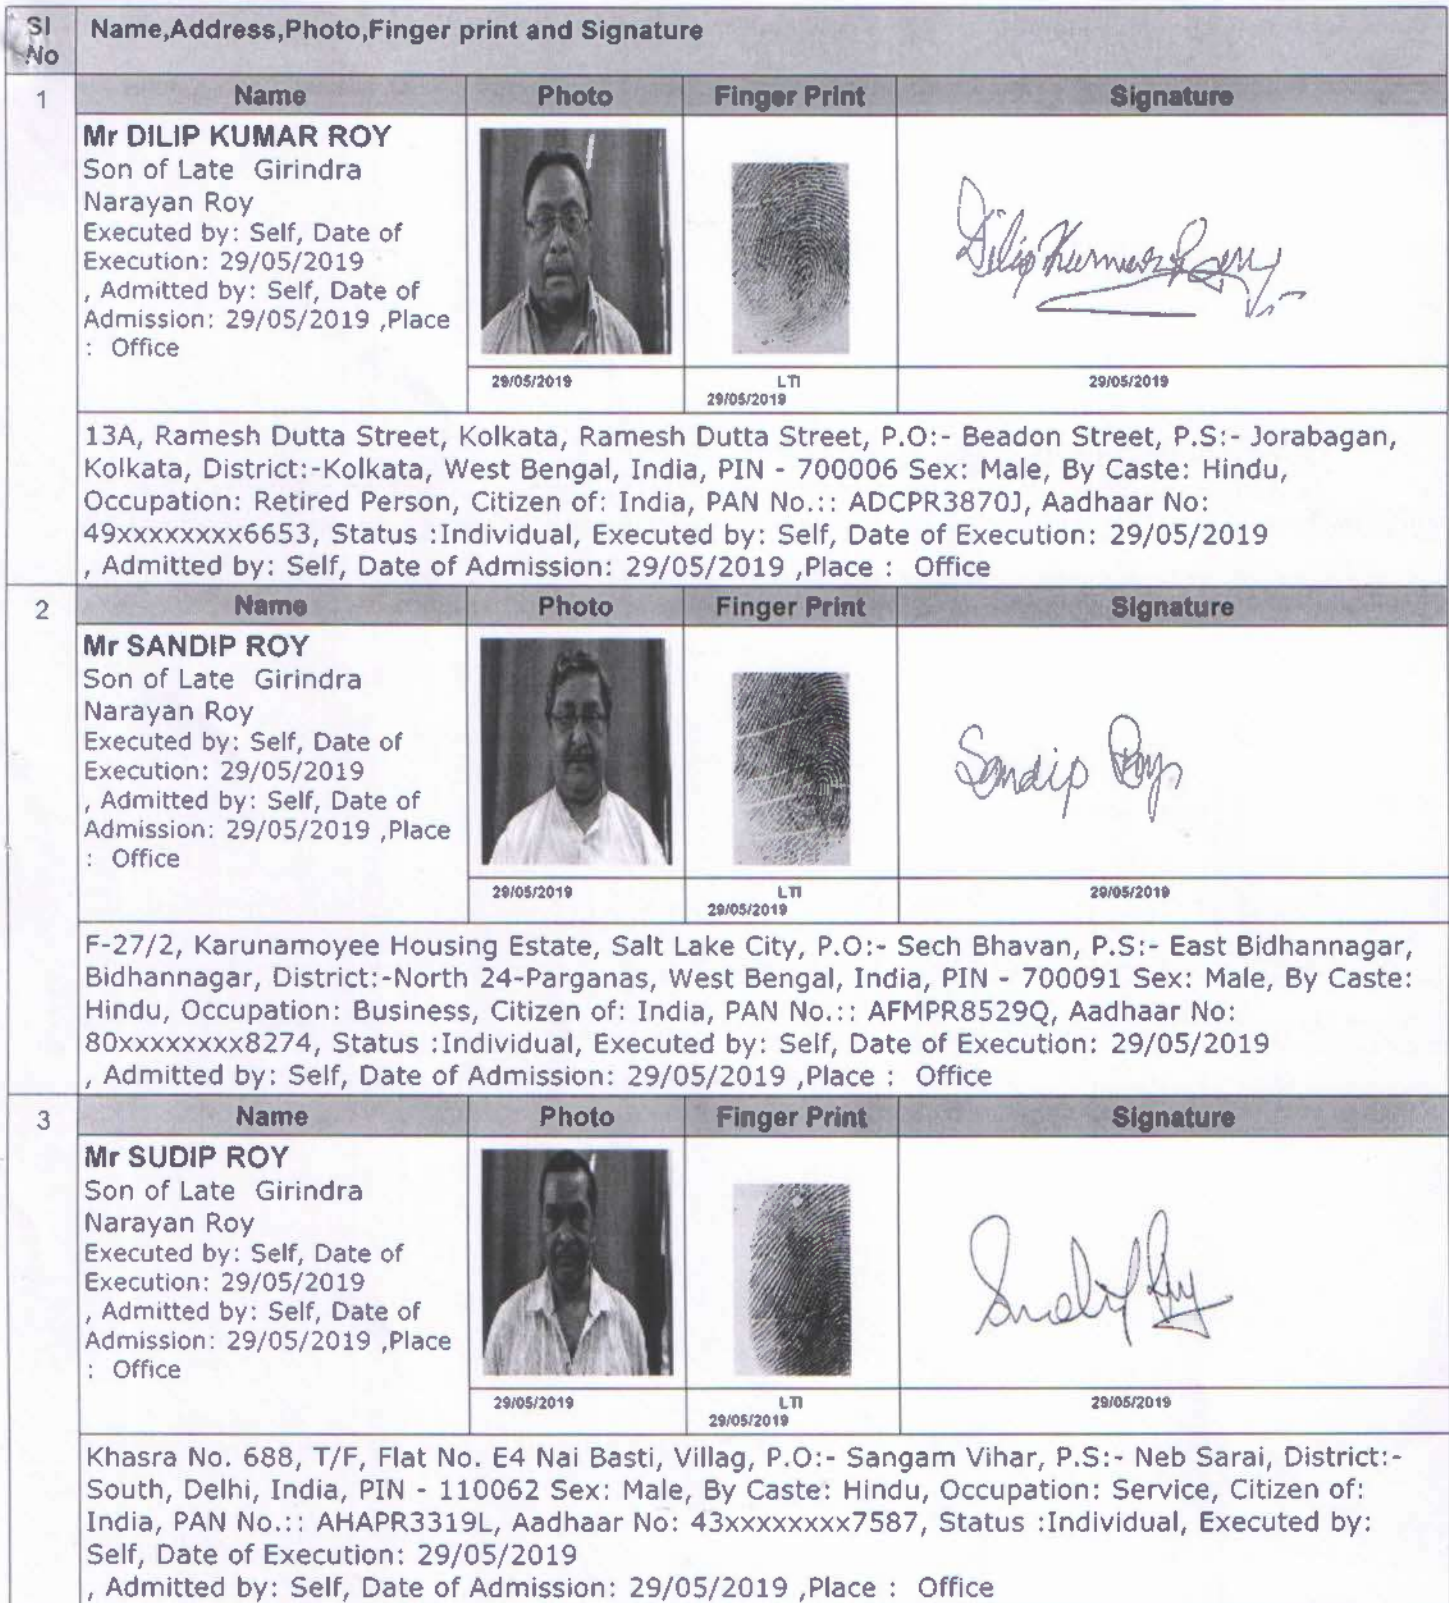 Sl No Name,Address,Photo,Finger print and Signature
1 Name Photo Finger Print Signature
Mr DILIP KUMAR ROY
Son of Late Girindra
Narayan Roy
Executed by: Self, Date of
Execution: 29/05/2019
, Admitted by: Self, Date of
Admission: 29/05/2019 ,Place
: Office
Dilip Kumar Roy
29/05/2019 LTI 29/05/2019 29/05/2019
13A, Ramesh Dutta Street, Kolkata, Ramesh Dutta Street, P.O:- Beadon Street, P.S:- Jorabagan,
Kolkata, District:-Kolkata, West Bengal, India, PIN - 700006 Sex: Male, By Caste: Hindu,
Occupation: Retired Person, Citizen of: India, PAN No.:: ADCPR3870J, Aadhaar No:
49xxxxxxxx6653, Status :Individual, Executed by: Self, Date of Execution: 29/05/2019
, Admitted by: Self, Date of Admission: 29/05/2019 ,Place : Office
2 Name Photo Finger Print Signature
Mr SANDIP ROY
Son of Late Girindra
Narayan Roy
Executed by: Self, Date of
Execution: 29/05/2019
, Admitted by: Self, Date of
Admission: 29/05/2019 ,Place
: Office
Sandip Roy
29/05/2019 LTI 29/05/2019 29/05/2019
F-27/2, Karunamoyee Housing Estate, Salt Lake City, P.O:- Sech Bhavan, P.S:- East Bidhannagar,
Bidhannagar, District:-North 24-Parganas, West Bengal, India, PIN - 700091 Sex: Male, By Caste:
Hindu, Occupation: Business, Citizen of: India, PAN No.:: AFMPR8529Q, Aadhaar No:
80xxxxxxxx8274, Status :Individual, Executed by: Self, Date of Execution: 29/05/2019
, Admitted by: Self, Date of Admission: 29/05/2019 ,Place : Office
3 Name Photo Finger Print Signature
Mr SUDIP ROY
Son of Late Girindra
Narayan Roy
Executed by: Self, Date of
Execution: 29/05/2019
, Admitted by: Self, Date of
Admission: 29/05/2019 ,Place
: Office
Sudip Roy
29/05/2019 LTI 29/05/2019 29/05/2019
Khasra No. 688, T/F, Flat No. E4 Nai Basti, Villag, P.O:- Sangam Vihar, P.S:- Neb Sarai, District:-
South, Delhi, India, PIN - 110062 Sex: Male, By Caste: Hindu, Occupation: Service, Citizen of:
India, PAN No.:: AHAPR3319L, Aadhaar No: 43xxxxxxxx7587, Status :Individual, Executed by:
Self, Date of Execution: 29/05/2019
, Admitted by: Self, Date of Admission: 29/05/2019 ,Place : Office